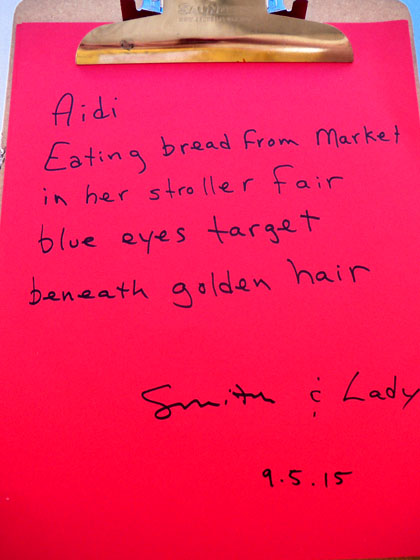 SAUNDERS
Aidi
Eating bread from Market
in her stroller fair
blue eyes target
beneath golden hair
Smith & Lady
9.5.15